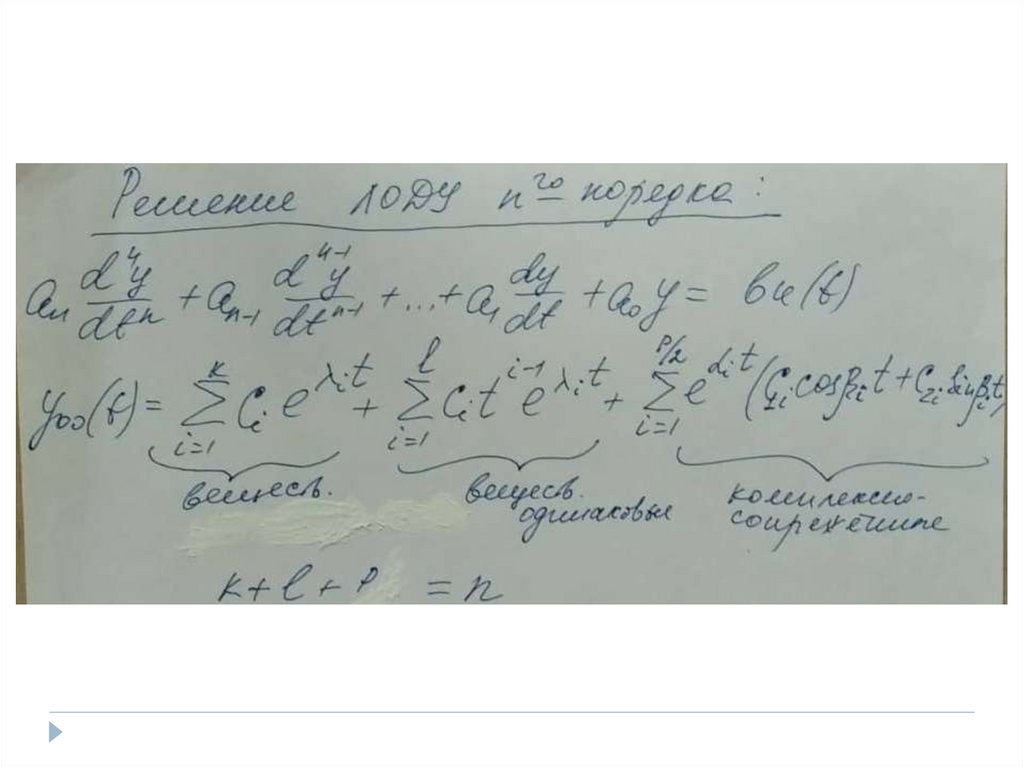 Решение ЛОДУ n го порядка:
aₙ dⁿy/dtⁿ + aₙ₋₁ dⁿ⁻¹y/dtⁿ⁻¹ + ... + a₁ dy/dt + a₀y = bu(t)
y₀₀(t) = Σᵢ₌₁ᵏ Cᵢ e^(λᵢt) + Σᵢ₌₁ˡ Cᵢ tⁱ⁻¹ e^(λᵢt) + Σᵢ₌₁^(p/2) e^(αᵢt) (C₁ᵢ cosβᵢt + C₂ᵢ sinβᵢt)
веществ.
веществ. одинаковые
комплексно-
сопряженные
k + l + p = n